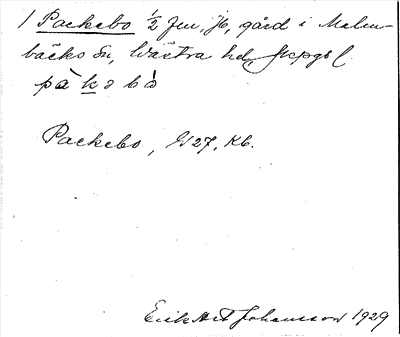 1 Packebo 1/2 fm, fk, gård i Malm-
bäcks sn, Västra hd, Jkpgs l
Packebo, 1/1 27, Kb.
Erik Art Johansson 1929